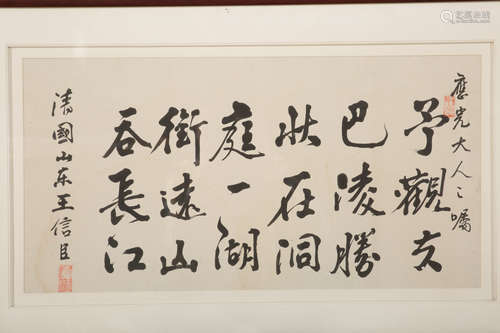 應光大人之嘱
予觀夫
巴陵勝
狀在洞
庭一湖
銜遠山
吞長江
清國山东王信臣